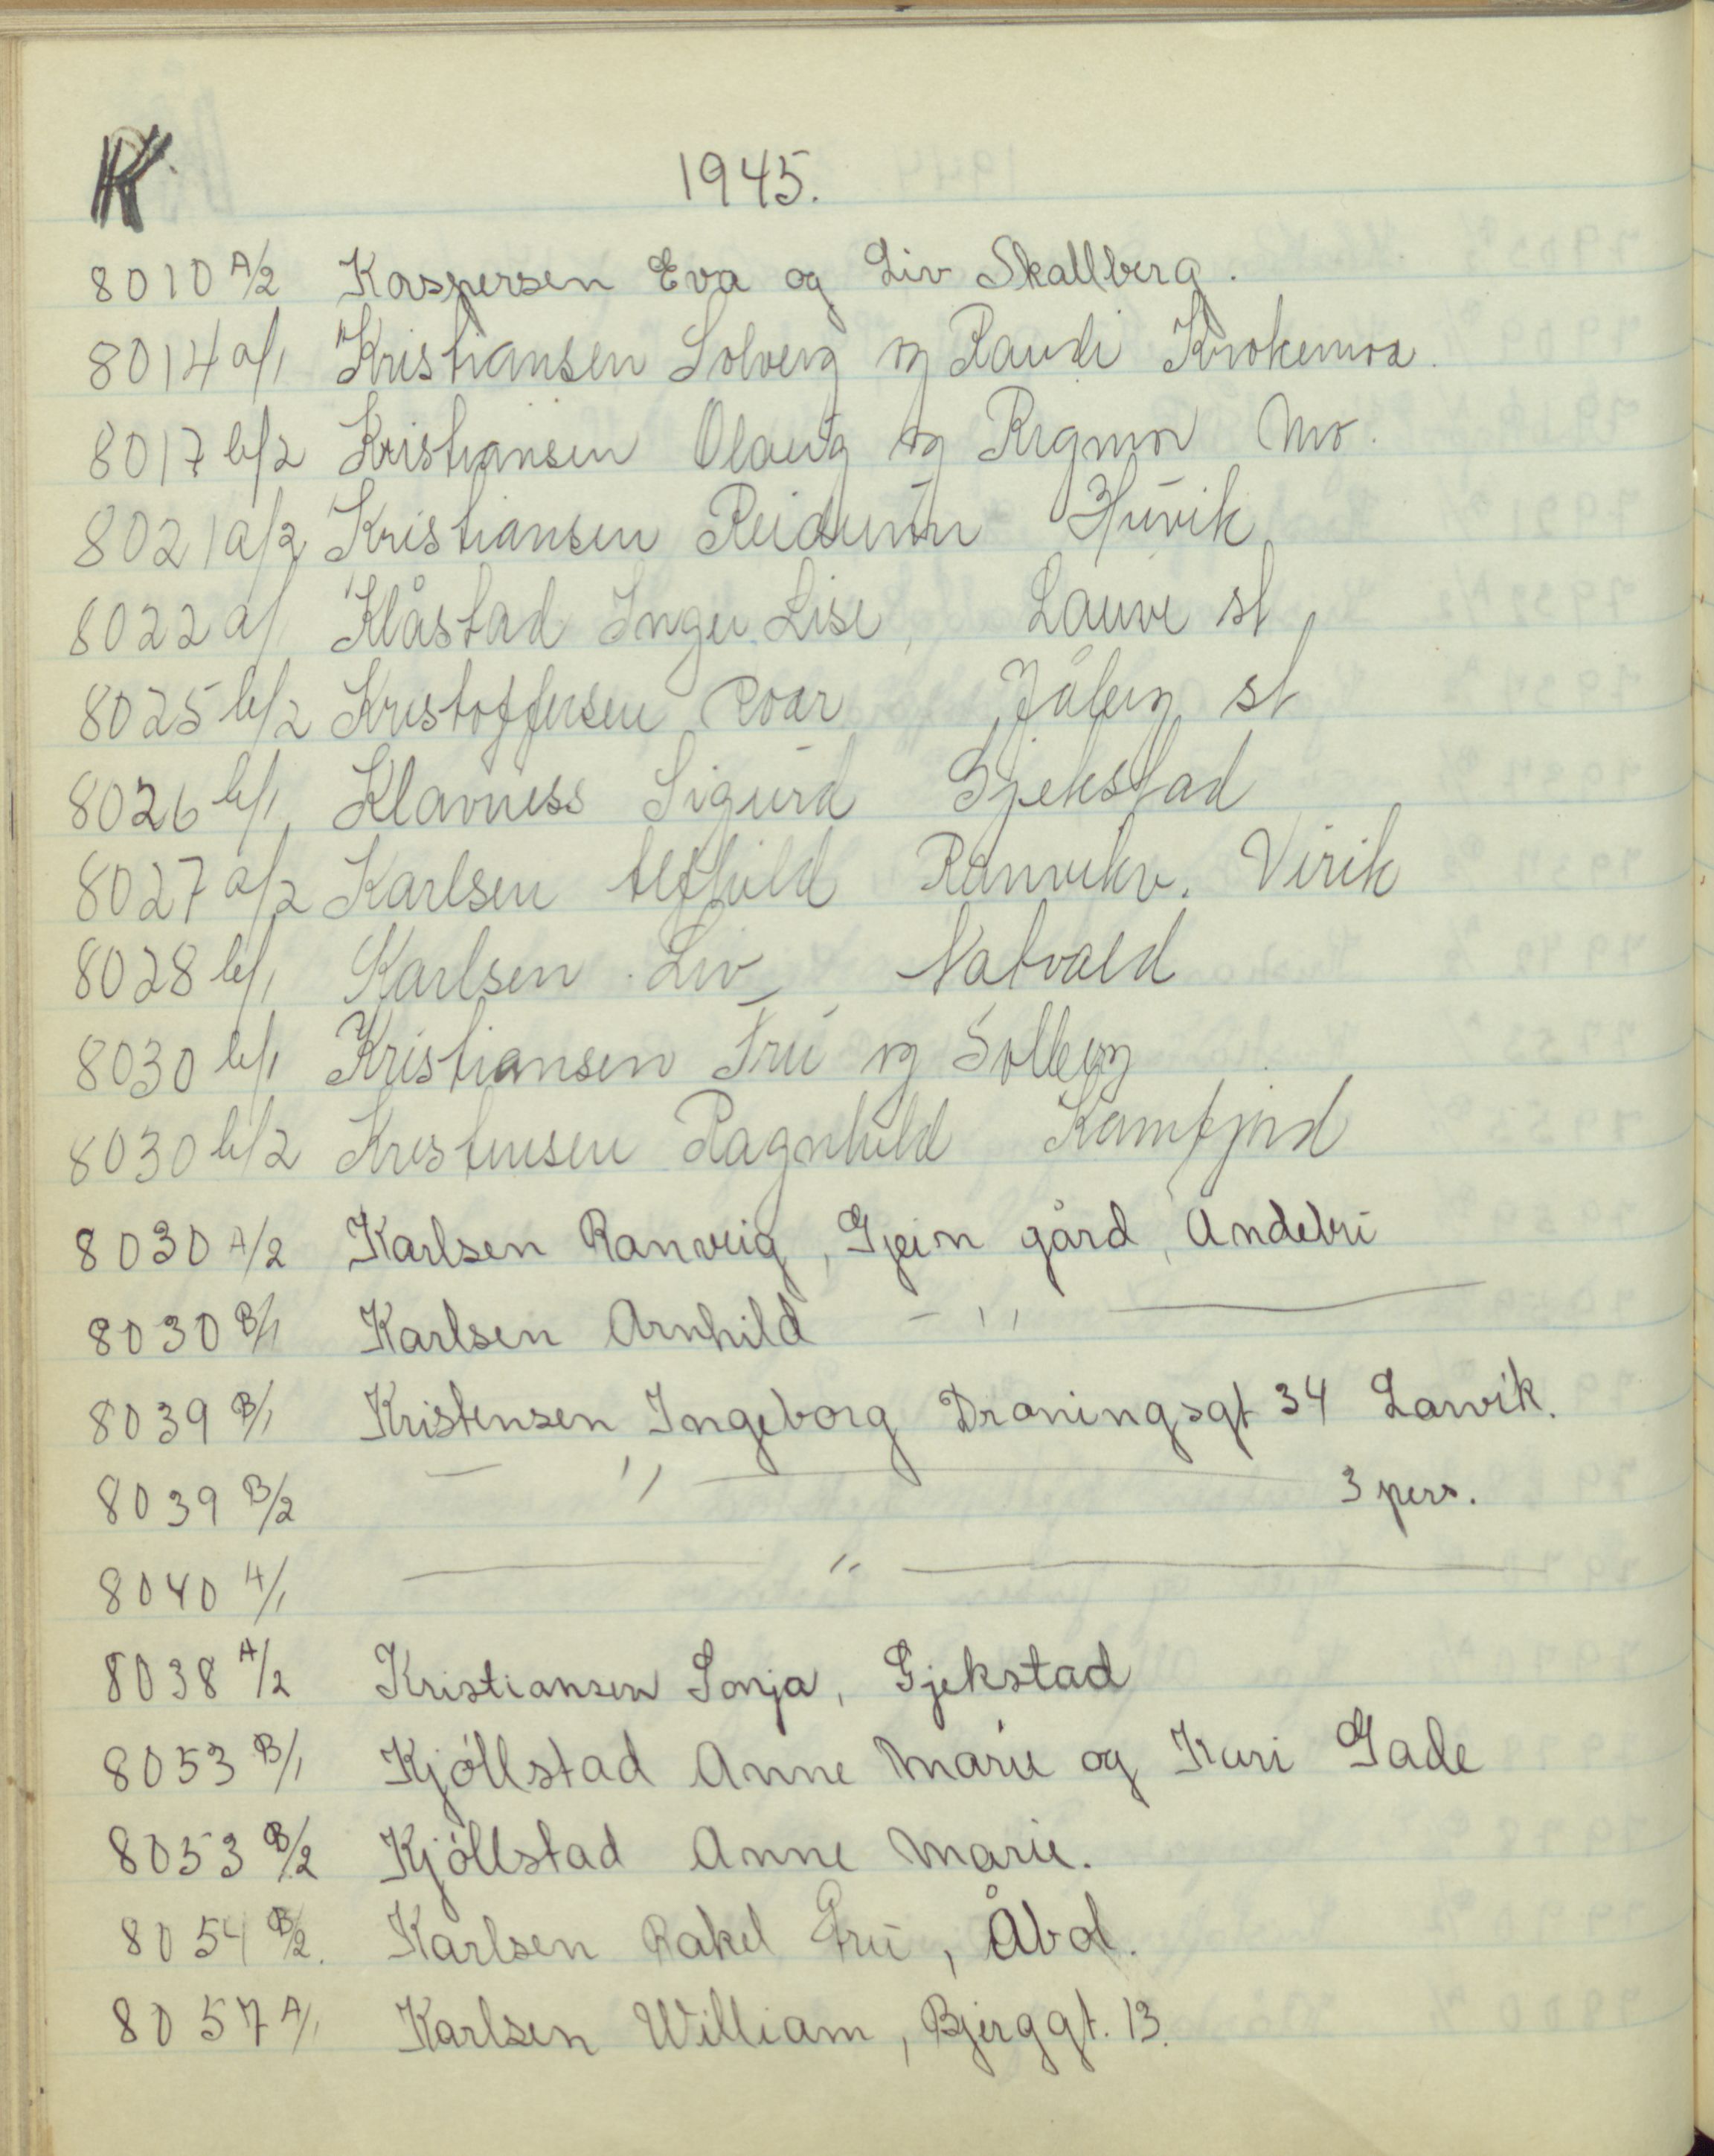 K
1945.
8010 A/2 Kaspersen Eva og Liv Skallberg.
8014 a/1 Kristiansen Solveig og Randi Krokemoa.
8017 b/2 Kristiansen Olaug og Rigmor Mo.
8021 a/2 Kristiansen Reidunn Huvik
8022 a/ Klåstad Inger Lise, Lauve st
8025 b/2 Kristoffersen Roar Jåberg st
8026 b/1 Klavness Sigurd Gjekstad
8027 a/2 Karlsen Alfhild Ranvikv. Virik
8028 b/1 Karlsen Liv, Natvald
8030 b/1 Kristiansen Fru og Solberg
8030 b/2 Kristensen Ragnhild Kamfjord
8030 A/2 Karlsen Ranveig, Gjein gård, Andebu
8030 B/1 Karlsen Arnhild — " —
8039 B/1 Kristensen Ingeborg Dronningsgt 34 Larvik.
8039 B/2 — " — 3 pers.
8040 A/1 — " —
8038 A/2 Kristiansen Sonja, Gjekstad
8053 B/1 Kjöllstad Anne Marie og Kari Gade
8053 B/2 Kjöllstad Anne Marie.
8054 B/2. Karlsen Rakel Fru, Åbol.
8057 A/1 Karlsen William, Bjerggt. 13.